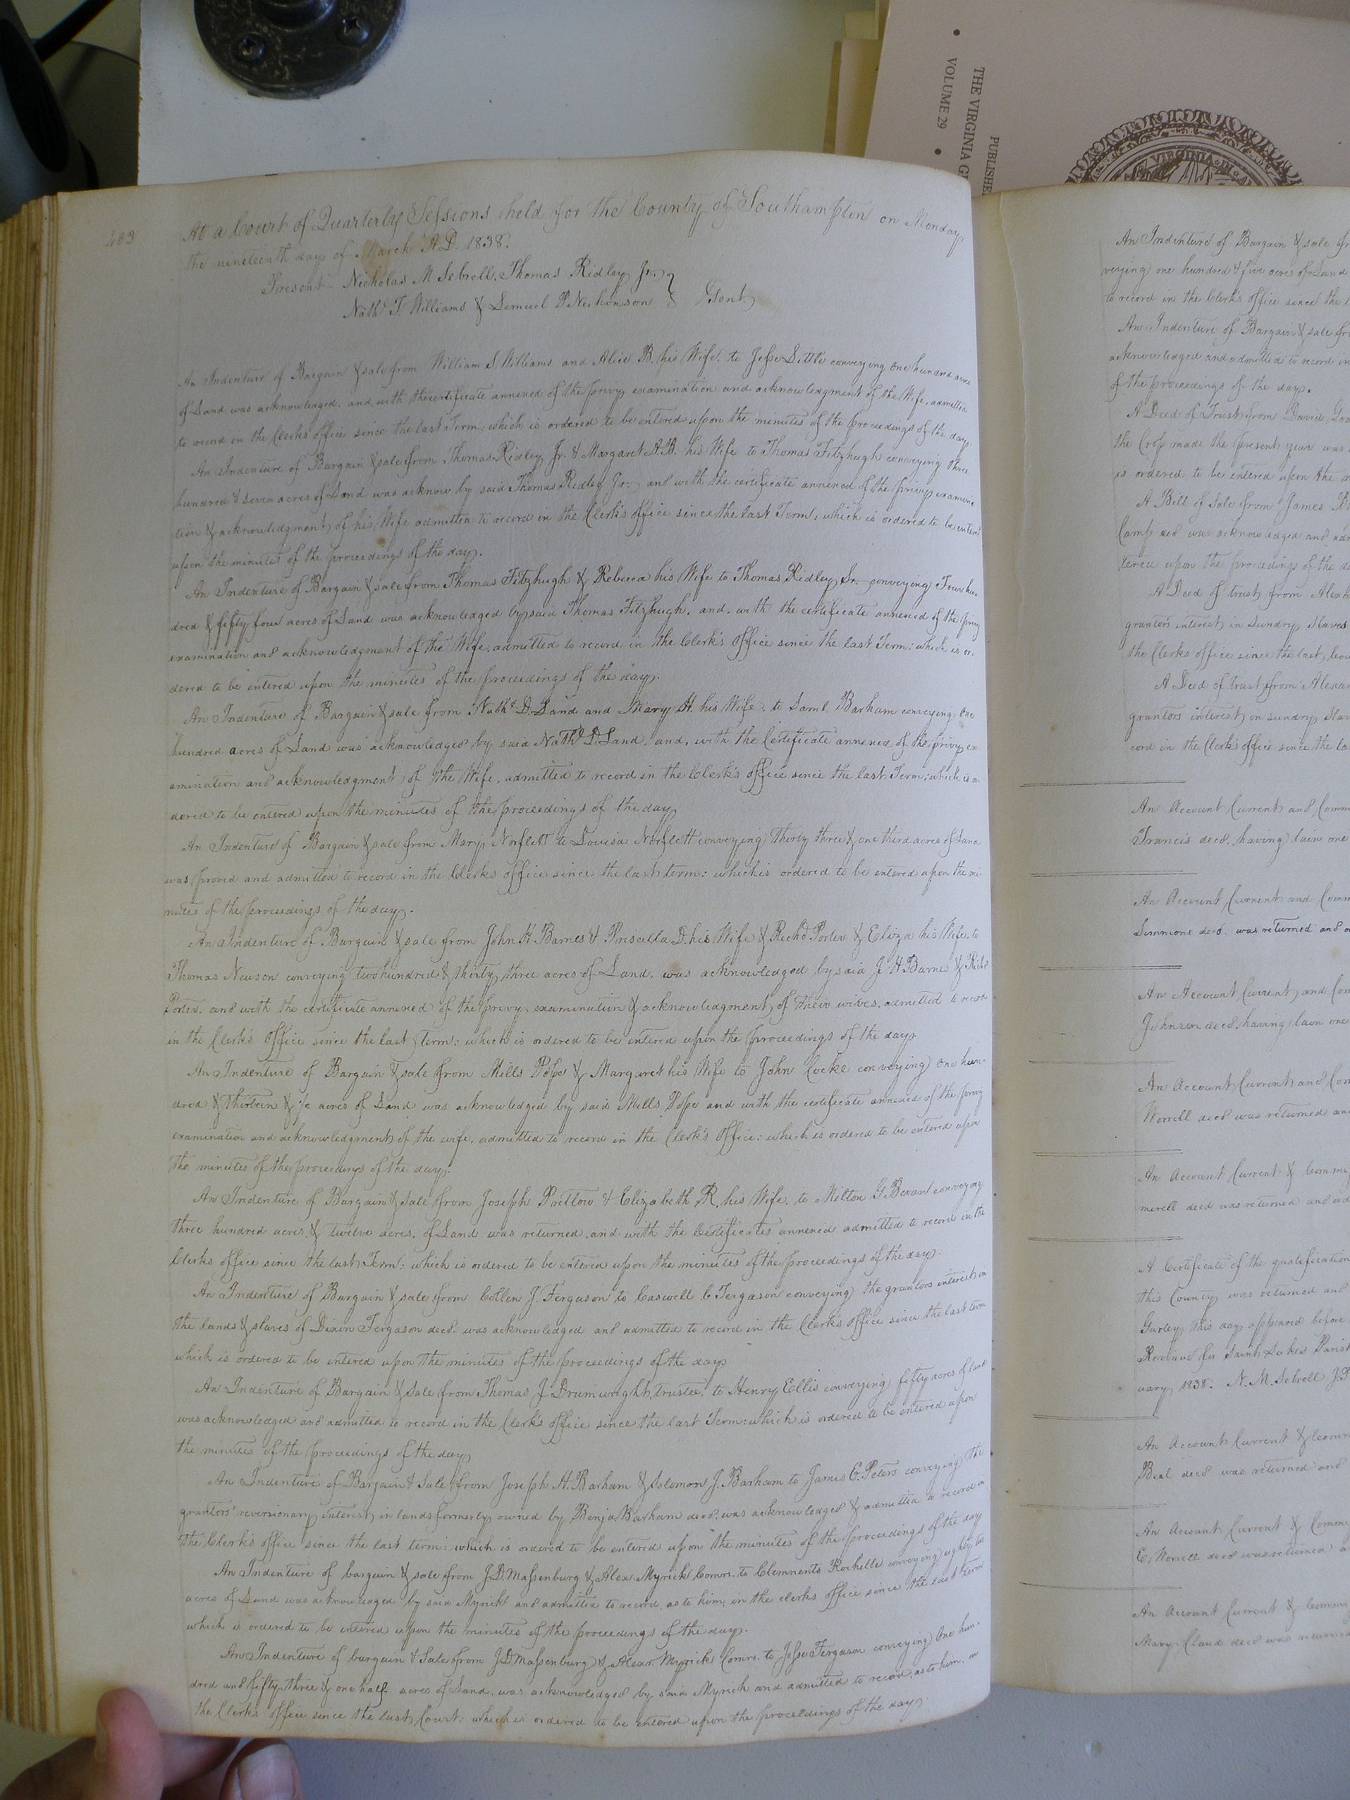 403
At a Court of Quarterly Sessions, held for the County of Southampton on Monday
the nineteenth day of March A.D. 1838.
Present Nicholas M Sebrell, Thomas Ridley Jr.
Nathl T. Williams & Lemuel P. Nicholson Gent.
An Indenture of Bargain & sale from William S Williams and Alice B. his Wife to Jesse Little conveying One hundred acres
of Land was acknowledged, and with the certificate annexed of the privy examination and acknowledgment of the Wife, admitted
to record in the Clerks office since the last Term, which is ordered to be entered upon the minutes of the proceedings of the day.
An Indenture of Bargain & sale from Thomas Ridley Jr. & Margaret A.B. his Wife to Thomas Fitzhugh conveying three
hundred & seven acres of Land was acknow by said Thomas Ridley Jr. and with the certificate annexed of the privy examina
tion & acknowledgment of his Wife admitted to record in the Clerk's office since the last Term, which is ordered to be entered
upon the minutes of the proceedings of the day.
An Indenture of Bargain & sale from Thomas Fitzhugh & Rebecca his Wife to Thomas Ridley Sr. conveying Four hun
dred & fifty four acres of Land was acknowledged by said Thomas Fitzhugh, and, with the certificate annexed of the privy
examination and acknowledgment of the Wife, admitted to record in the Clerk's office since the last Term: which is or
dered to be entered upon the minutes of the proceedings of the day.
An Indenture of Bargain & sale from Nathl D. Land and Mary H. his Wife, to Saml Barham conveying One
hundred acres of Land was acknowledged by said Nathl D. Land, and, with the Certificate annexed of the privy ex
amination and acknowledgment of the Wife, admitted to record in the Clerk's office since the last Term: which is or
dered to be entered upon the minutes of the proceedings of the day
An Indenture of Bargain & sale from Mary Norfleet to Louisa Norfleet conveying thirty three & one third acres of Land
was proved and admitted to record in the Clerks office since the last term: which is ordered to be entered upon the mi
nutes of the proceedings of the day.
An Indenture of Bargain & sale from John H. Barnes & Priscilla D. his Wife & Richd Porter & Eliza his Wife, to
Thomas Newsom conveying two hundred & thirty three acres of Land, was acknowledged by said J. H. Barnes & Richd
Porter, and with the certificate annexed of the privy examination & acknowledgment of their wives, admitted to record
in the Clerks Office since the last Term: which is ordered to be entered upon the proceedings of the day
An Indenture of Bargain & sale from Mills Pope & Margaret his Wife to John Cocke conveying One hun-
dred & thirteen & acres of Land was acknowledged by said Mills Pope and with the certificate annexed of the privy
examination and acknowledgment of the wife, admitted to record in the Clerk's Office: which is ordered to be entered upon
the minutes of the proceedings of the day.
An Indenture of Bargain & sale from Joseph Prettow & Elizabeth R. his Wife, to Milton G. conveying
three hundred acres & twelve acres, of Land was returned and with the Certificates annexed admitted to record in the
Clerks office since the last Term: which is ordered to be entered upon the minutes of the proceedings of the day.
An Indenture of Bargain & sale from Collen J. Ferguson to Caswell C Ferguson conveying the grantors interest in
the lands & slaves of Dixon Ferguson decd. was acknowledged and admitted to record in the Clerks office since the last term
which is ordered to be entered upon the minutes of the proceedings of the day
An Indenture of Bargain & Sale from Thomas J. Drumwright, trustee, to Henry Ellis conveying fifty acres of Land
was acknowledged and admitted to record in the Clerk's office since the last Term: which is ordered to be entered upon
the minutes of the proceedings of the day
An Indenture of Bargain & Sale from Joseph H. Barham & Solomon J. Barham to James E. Peters conveying the
grantors' reversionary interest in lands formerly owned by Benja Barham decd, was acknowledged & admitted to record in
the Clerk's office since the last term: which is ordered to be entered upon the minutes of the proceedings of the day
An Indenture of bargain & sale from J.D. Massenburg & Alex. Myrick Comrs. to Clements Rochelle conveying eighty
acres of Land was acknowledged by said Myrick and admitted to record, as to him, in the clerks office since the last term
which is ordered to be entered upon the minutes of the proceedings of the day.
An Indenture of bargain & Sale from J.D. Massenburg & Alexr. Myrick Comrs. to Jesse Ferguson conveying One hun-
dred and fifty three & one half acres of Land, was acknowledged by said Myrick and admitted to record, as to him, in
the Clerk's office since the last Court: which is ordered to be entered upon the proceedings of the day.
An Indenture of Bargain & sale
veying one hundred & five acres of Land
to record in the Clerk's office since the
An Indenture of Bargain & sale
acknowledged and admitted to record
of the proceedings of the day.
A Deed of Trust from David
the Crop made the present year was
is ordered to be entered upon the
A Bill of Sale from James
Camp decd was acknowledged and
tered upon the proceedings of the
A Deed of trust from
grantors interest in sundry slaves
the Clerks office since the last
A Deed of trust from
grantors interest in sundry
cord in the Clerk's office since the
An Account Current and
Francis decd. having lain one
An Account Current and
Simmons decd. was returned and
An Account Current and
Johnson decd. having lain one
An Account Current and
Worrell decd was returned
An Account Current &
decd was returned and
A Certificate of the qualification
this County was returned and
Gurley this day appeared before
Revenue for Saint Lukes Parish
uary 1838. N. M. Sebrell J.P.
An Account Current &
Beal decd was returned and
An Account Current &
E. Worrell decd was returned
An Account Current &
Mary Claud decd was
THE VIRGINIA
VOLUME 29
VIRGINIA